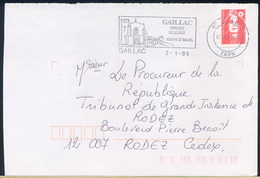 GAILLAC
GAILLAC
2-1-96
TARN
M. sieur Le Procureur de la
République
Tribunal de Grande Instance de
RODEZ
Boulevard Pierre Benoît
12 007 RODEZ Cedex